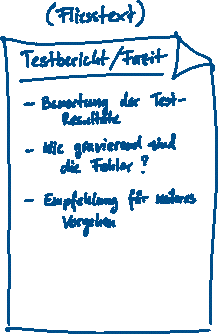 (Fliesstext)
Testbericht/Fazit
- Bewertung der Test-
Resultate
- Wie gravierend sind
die Fehler?
- Empfehlung für weiteres
Vorgehen